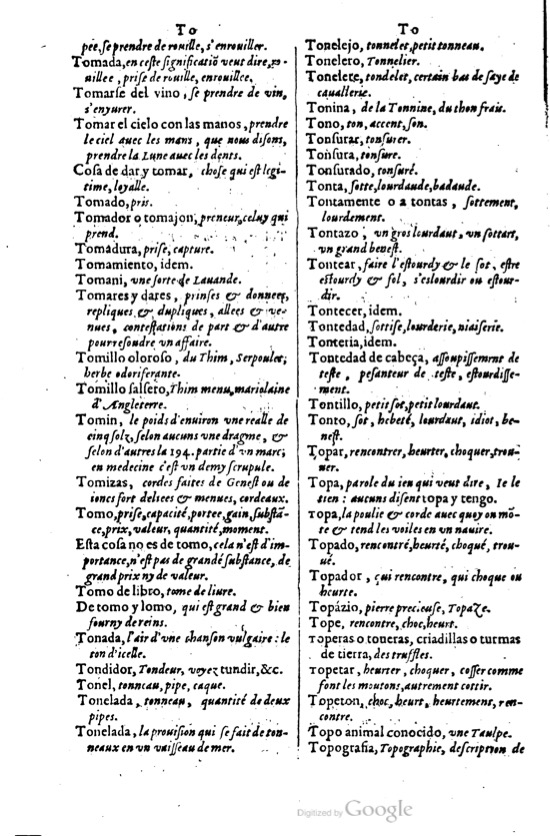 To
pée, se prendre de rouille, s'enrouiller.
Tomada, en ceste significatiō veut dire, ro-
uillee, prise de rouille, enrouillee.
Tomarse del vino, se prendre de vin,
s'enyurer.
Tomar el cielo con las manos, prendre
le ciel auec les mans, que nous disons,
prendre la Lune auec les dents.
Cosa de dar y tomar, chose qui est legi-
time, loyalle.
Tomado, pris.
Tomador o tomajon, preneur, celuy qui
prend.
Tomadura, prise, capture.
Tomamiento, idem.
Tomani, vne sorte de Lauande.
Tomares y dares, prinses & donnees,
repliques & dupliques, allees & ve-
nues, contestations de part & d'autre
pour resoudre vn affaire.
Tomillo oloroso, du Thim, Serpoulet;
herbe odoriferante.
Tomillo salsero, Thim menu, mariolaine
d'Angleterre.
Tomin, le poids d'enuiron vne realle de
cinq solz, selon aucuns vne dragme, &
selon d'autres la 194. partie d'vn marc;
en medecine c'est vn demy scrupule.
Tomizas, cordes faites de Genest ou de
ioncs fort deliees & menues, cordeaux.
Tomo, prise, capacité, portee, gain, substā-
ce, prix, valeur, quantité, moment.
Esta cosa no es de tomo, cela n'est d'im-
portance, n'est pas de grande substance, de
grand prix ny de valeur.
Tomo de libro, tome de liure.
De tomo y lomo, qui est grand & bien
fourny de reins.
Tonada, l'air d'vne chanson vulgaire: le
ton d'icelle.
Tondidor, Tondeur, voyez tundir, &c.
Tonel, tonneau, pipe, caque.
Tonelada, tonneau, quantité de deux
pipes.
Tonelada, la prouision qui se fait de ton-
neaux en vn vaisseau de mer.
To
Tonelejo, tonnelet, petit tonneau.
Tonelero, Tonnelier.
Tonelete, tondelet, certain bas de saye de
cauallerie.
Tonina, de la Tonnine, du thon frais.
Tono, ton, accent, son.
Tonsurar, tonsurer.
Tonsura, tonsure.
Tonsurado, tonsuré.
Tonta, sotte, lourdaude, badaude.
Tontamente o a tontas, sottement,
lourdement.
Tontazo, vn gros lourdaut, vn sottart,
vn grand benest.
Tontear, faire l'estourdy & le sot, estre
estourdy & fol, s'eslourdir ou estour-
dir.
Tontecer, idem.
Tontedad, sottise, lourderie, niaiserie.
Tonteria, idem.
Tontedad de cabeça, assoupissement de
teste, pesanteur de teste, estourdisse-
ment.
Tontillo, petit sot, petit lourdaut.
Tonto, sot, hebeté, lourdaut, idiot, be-
nest.
Topar, rencontrer, heurter, choquer, trou-
uer.
Topa, parole du ieu qui veut dire, Ie le
tien: aucuns disent topa y tengo.
Topa, la poulie & corde auec quoy on mō-
te & tend les voiles en vn nauire.
Topado, rencontré, heurté, choqué, trou-
ué.
Topador, qui rencontre, qui choque ou
heurte.
Topázio, pierre precieuse, Topaze.
Tope, rencontre, choc, heurt.
Toperas o toueras, criadillas o turmas
de tierra, des truffles.
Topetar, heurter, choquer, cosser comme
font les moutons, autrement cottir.
Topeton, choc, heurt, heurtement, ren-
contre.
Topo animal conocido, vne Taulpe.
Topografia, Topographie, description de
Digitized by Google